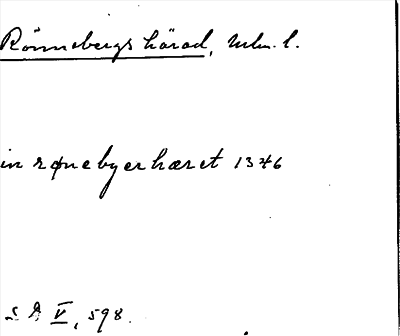 Rönnebergs härad, Mlm. l.
in rønebyerhæret 1346
S D V, 598.